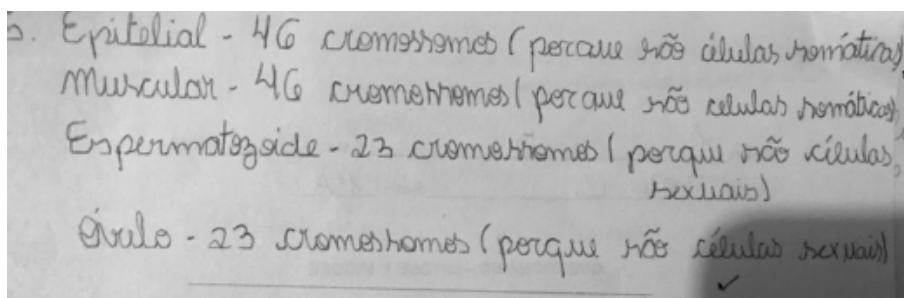 5. Epitelial - 46 cromossomos (porque são células somáticas)
Muscular - 46 cromossomos (porque são celulas somáticas)
Espermatozoide - 23 cromossomos (porque são células,
sexuais)
óvulo - 23 cromossomos (porque são células sexuais)